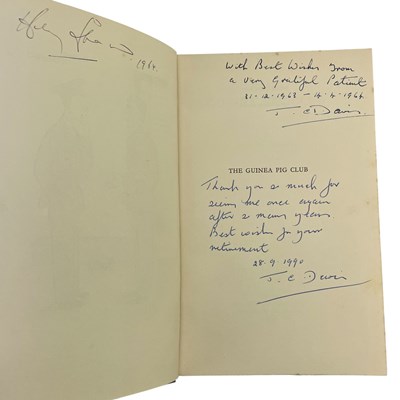 1964.
With Best Wishes From
a Very Grateful Patient
31-12-1963 - 14.4.1964
J. C. Davis
THE GUINEA PIG CLUB
Thank you so much for
seeing me once again
after so many years
Best wishes for your
retirement
28.9.1990
J. C. Davis